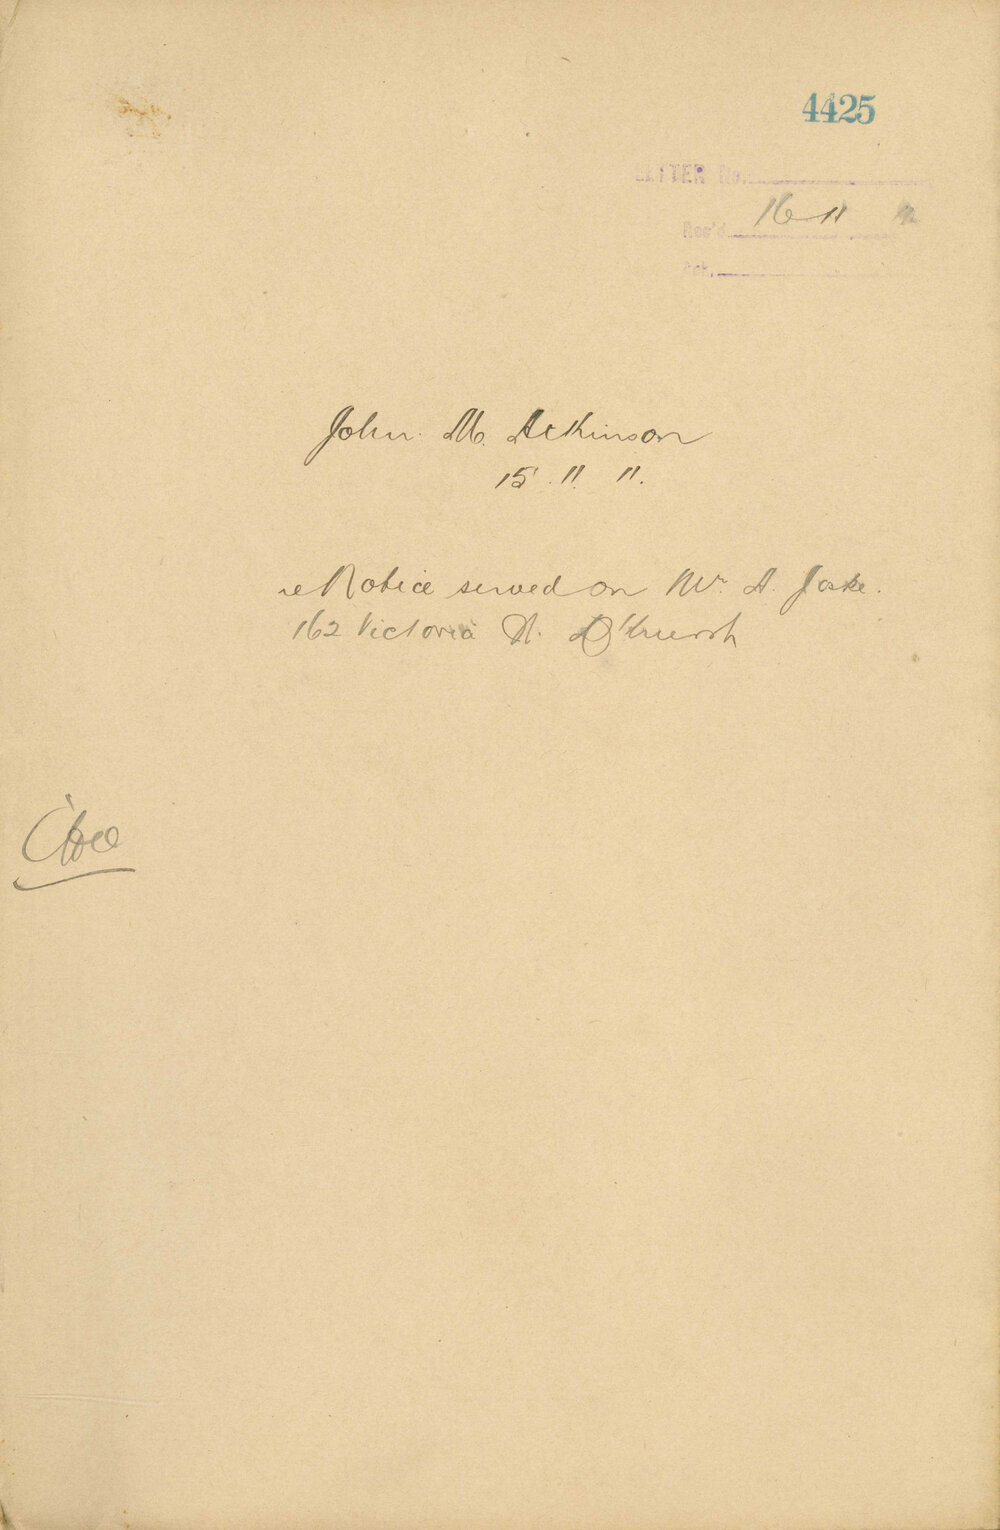 4425
LETTER No.
Rec'd 16 11
Ack.
John. M. Atkinson
15. 11. 11.
re Notice served on Mr. A. Jaske.
162 Victoria St. D'hursh